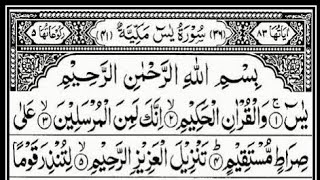 اٰیَاتُهَا ٨٣ (٣٦) سُوْرَةُ یٰسٓ مَکِّیَّةٌ (٤١) رُکُوْعَاتُهَا ٥
بِسْمِ اللّٰهِ الرَّحْمٰنِ الرَّحِیْمِ
یٰسٓ ۚ﴿١﴾ وَالْقُرْاٰنِ الْحَکِیْمِ ۙ﴿٢﴾ اِنَّكَ لَمِنَ الْمُرْسَلِیْنَ ۙ﴿٣﴾ عَلٰی
صِرَاطٍ مُّسْتَقِیْمٍ ؕ﴿٤﴾ تَنْزِیْلَ الْعَزِیْزِ الرَّحِیْمِ ۙ﴿٥﴾ لِتُنْذِرَ قَوْمًا